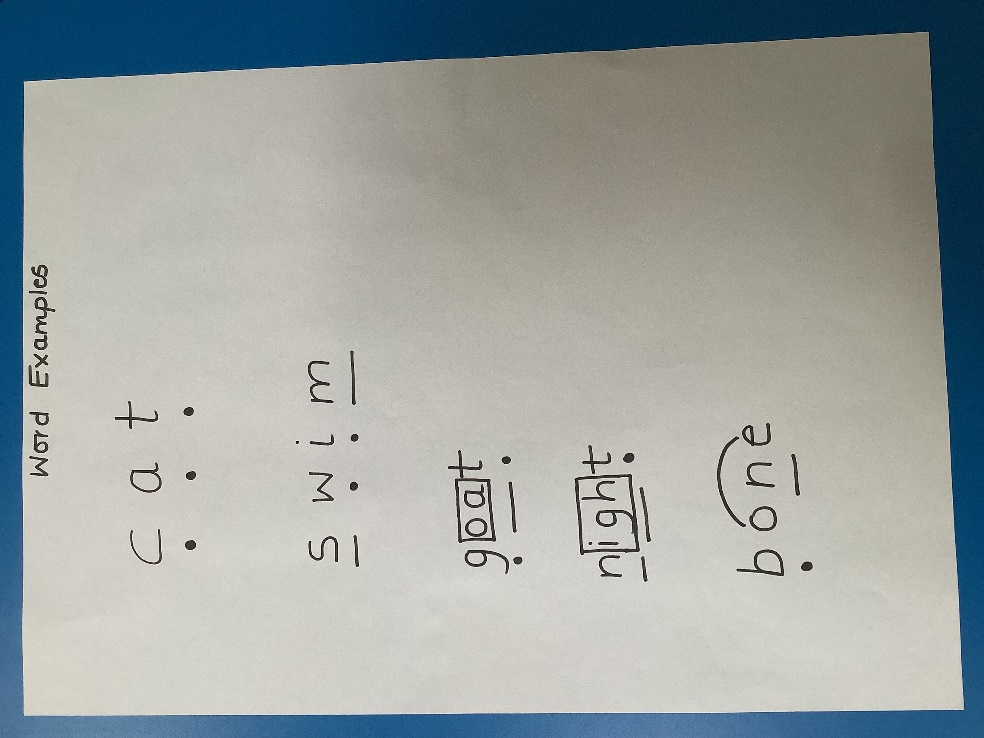 Word Examples
c a t
s w i m
goat
night
bone